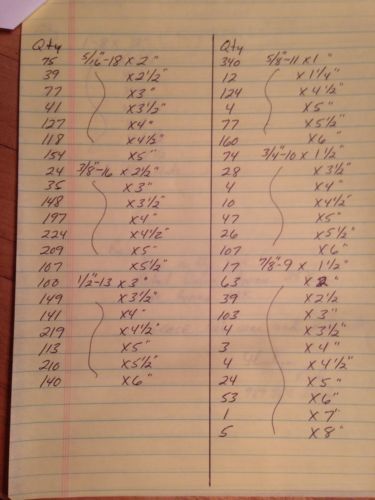 Qty
75 5/16-18 x 2"
39 x 2 1/2"
77 x 3"
41 x 3 1/2"
127 x 4"
118 x 4 1/2"
154 x 5"
24 3/8"-16 x 2 1/2"
35 x 3"
148 x 3 1/2"
197 x 4"
224 x 4 1/2"
209 x 5"
107 x 5 1/2"
100 1/2"-13 x 3"
149 x 3 1/2"
141 x 4"
219 x 4 1/2"
113 x 5"
210 x 5 1/2"
140 x 6"
Qty
340 5/8"-11 x 1"
12 x 1 1/4"
124 x 4 1/2"
4 x 5"
77 x 5 1/2"
160 x 6"
74 3/4-10 x 1 1/2"
28 x 3 1/2"
4 x 4"
10 x 4 1/2"
47 x 5"
26 x 5 1/2"
107 x 6"
17 7/8"-9 x 1 1/2"
63 x 2"
39 x 2 1/2
103 x 3"
4 x 3 1/2"
3 x 4"
4 x 4 1/2"
24 x 5"
53 x 6"
1 x 7"
5 x 8"